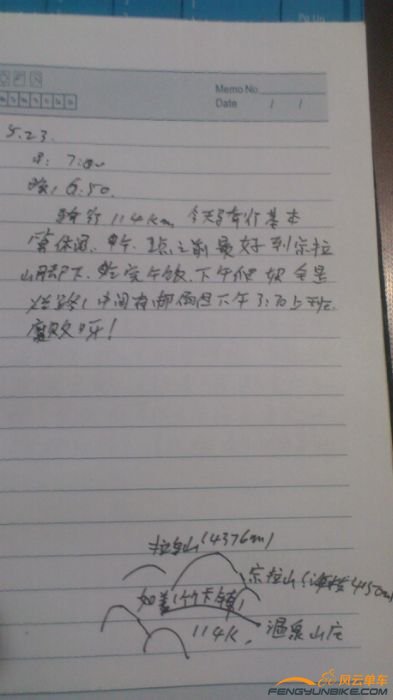 Memo No.
Date / /
5.23.
早: 7:00
晚: 6:50.
骑行114km, 今天骑行基本
算休闲, 中午 点之前最好到宗拉
山脚下, 吃完午饭, 下午爬坡全是
烂路, 中间有 下午3:30上班.
腐败呀!
拉乌山(4376m)
宗拉山(海拔4150m)
如美(竹卡镇)
114k, 温泉山庄
风云单车
FENGYUNBIKE.COM